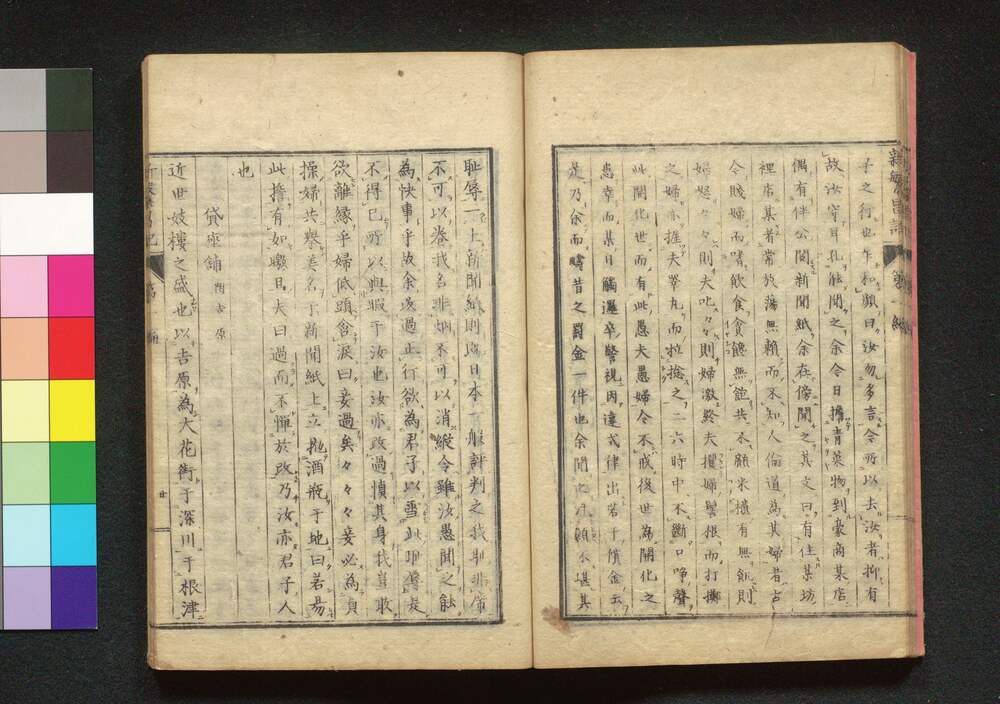 子之行也乍和顔曰汝勿多言今所以去汝者抑有
故汝穿耳孔能聞之余今日擔青菜物到豪商某店
偶有伴公閲新聞紙余在傍聞之其文曰有住某坊
裡店某者常放蕩無頼而不知人倫道為其婦者古
令賤婦而嗜飲食貪饐無飽共不顧米櫃有無飢則
婦怒々々則夫叱々々則婦激終夫攫婦髻根而打擲
之婦亦握夫睪丸而拉捻之二六時中不斷口啅聲
此開化世而有此愚夫愚婦令不戒後世為開化之
愚幸而某日觸邏卒警視因違式律出若干償金云
是乃余而疇昔之罰金一件也余聞之汗顔不堪其
耻辱一上新聞紙則為日本一般評判之我耶非常
不可以巻我名非烟不可以消縦令雖汝愚聞之能
為快事乎故余改過止行欲為君子以雪此耶辱是
不得已所以與暇于汝也汝亦改過慎其身我豈敢
欲離縁乎婦低頭含涙曰妾過矣々々々妾必為貞
操婦共擧美名于新聞紙上立抛酒瓶于地曰若易
此擔有如皦日夫曰過而不憚於改乃汝亦君子人
也
貸座鋪 附吉原
近世妓樓之盛也以吉原為大花街于深川于根津
新繁昌記 第一編
廿